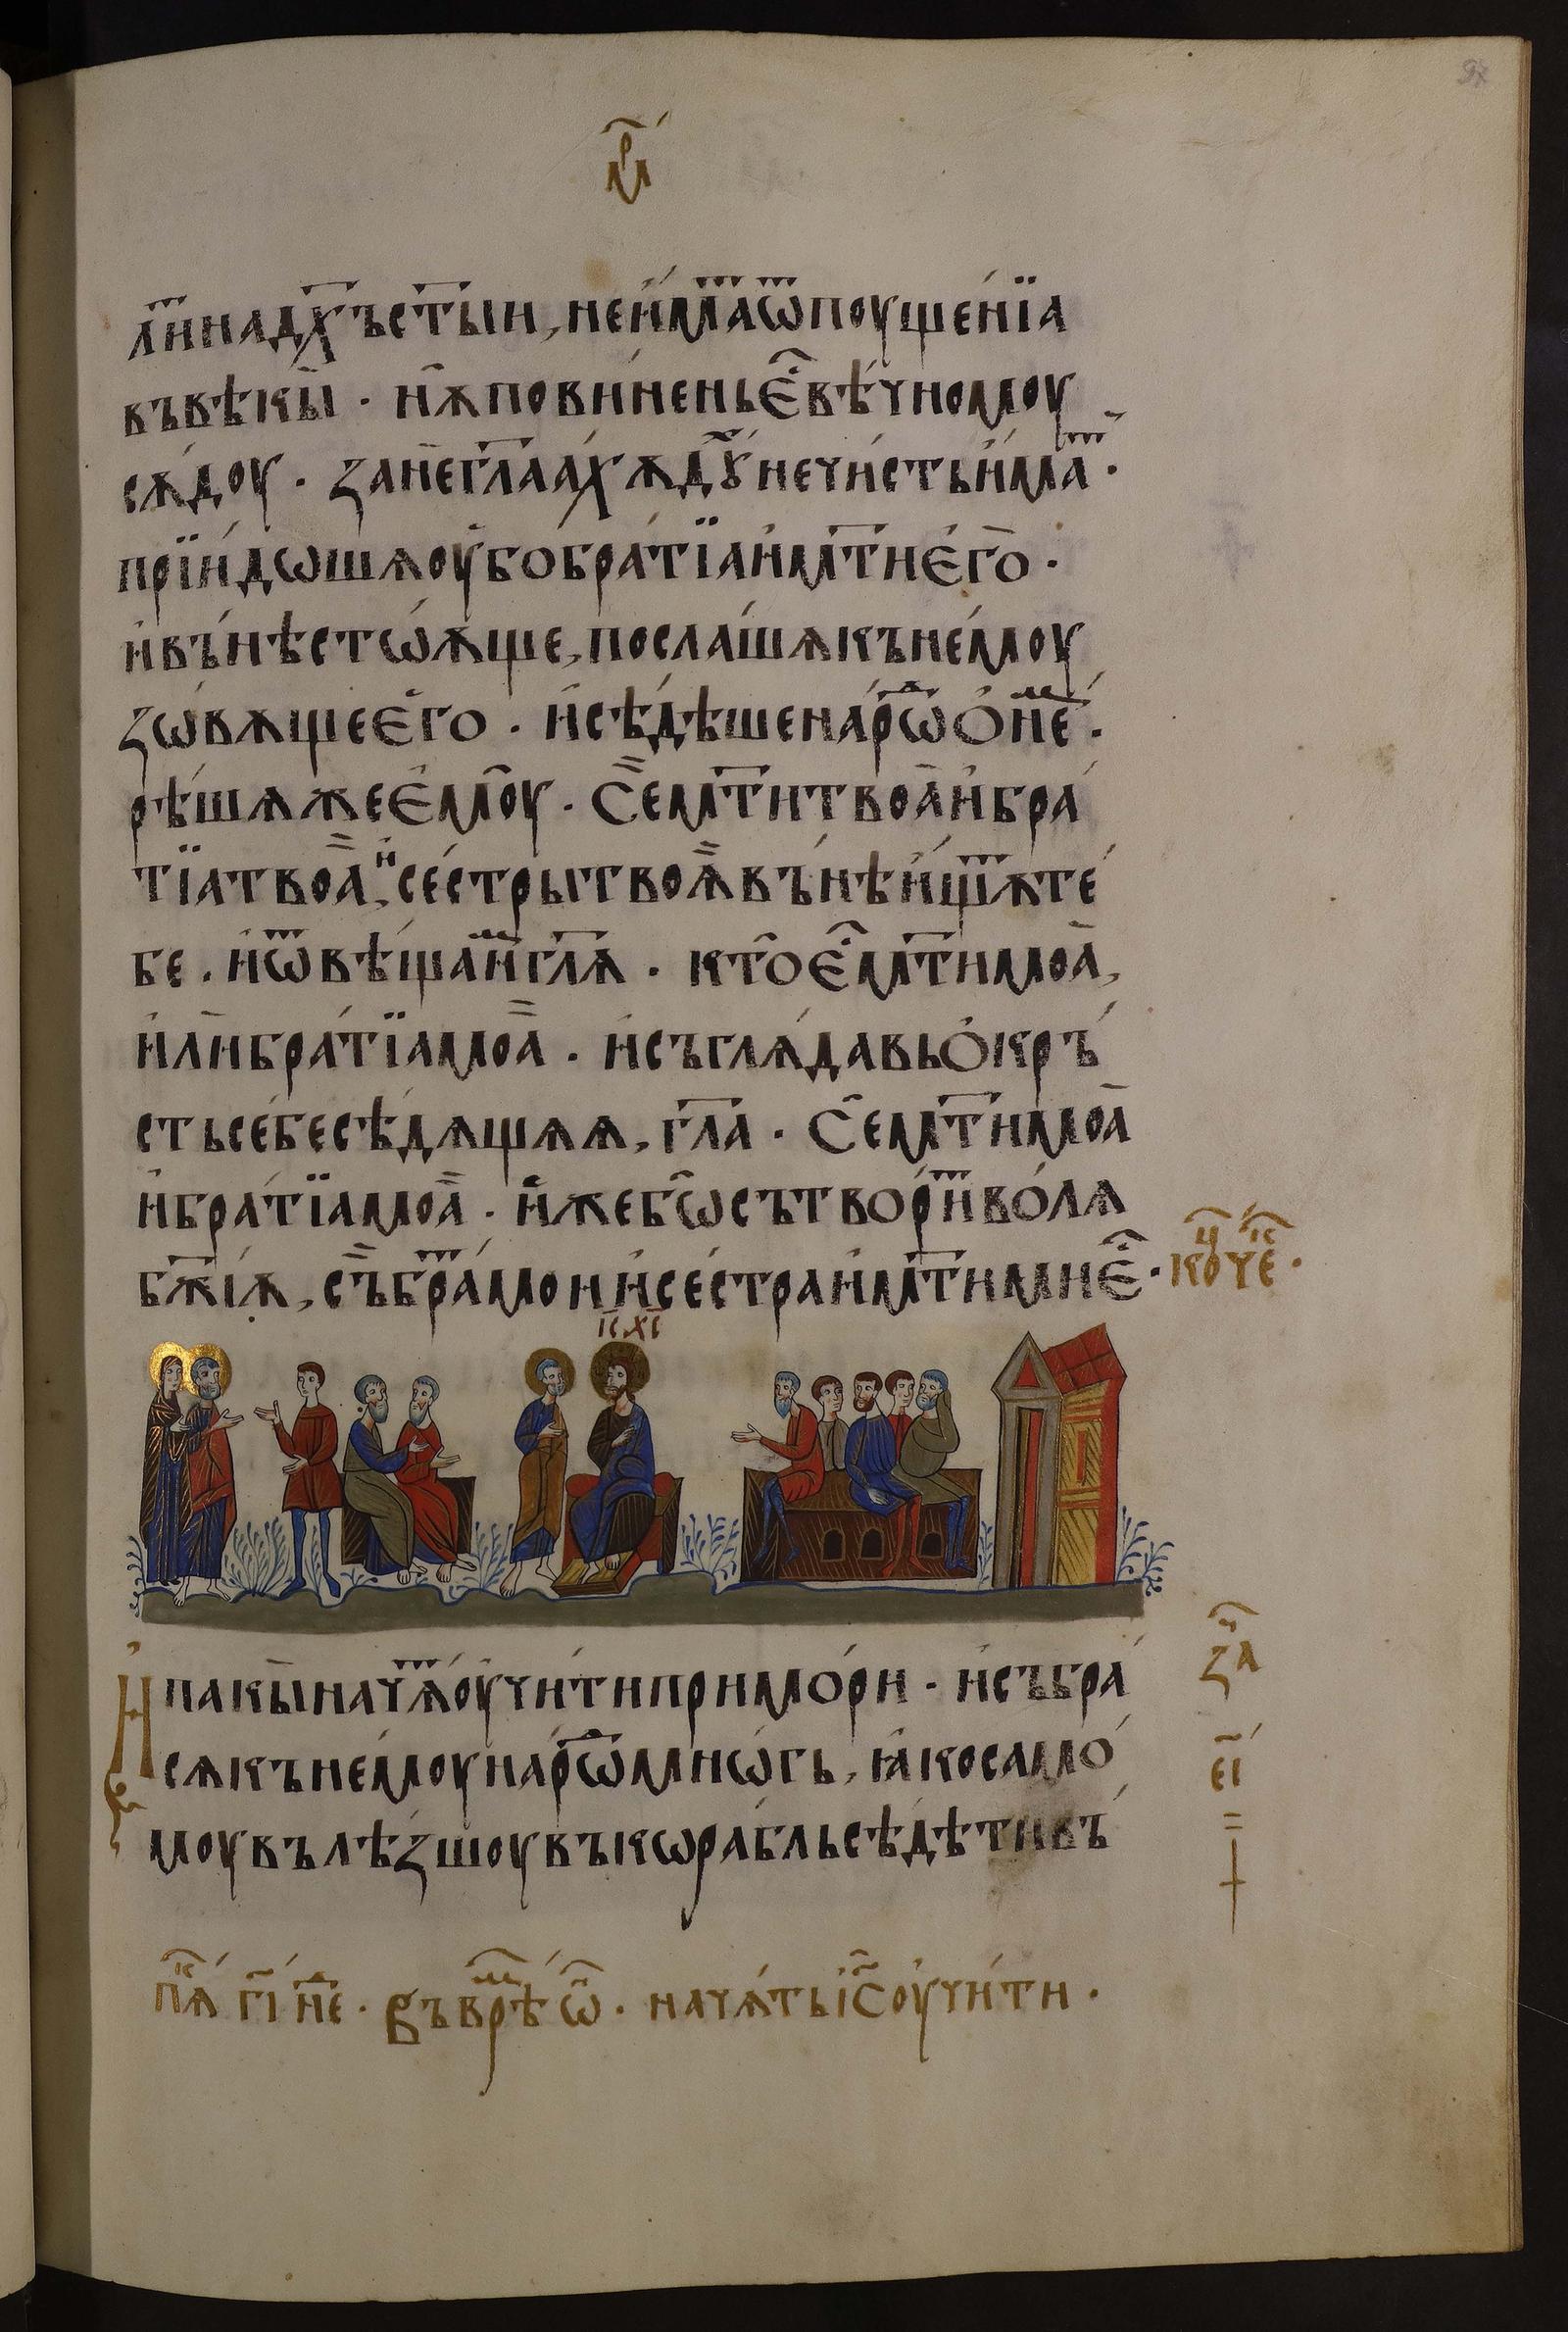 97
мр҃
ли на дх҃ъ ст҃ыи, не има ѿпоущенїа
въ вѣкы · нѫ повинень є҆ вѣчномоу
сѫдоу · ꙁане гл҃аахѫ дх҃ꙋ нечисть има ·
прїидошѧ оубо братїа и мт҃и єго ·
и вънѣ стѡѫще, послашѧ къ немоу
ꙁѡвѫще єго · и сѣдѣше нарѡ ѻ не ·
рѣшѧ же ємоу · Се мт҃и твоа и бра
тїа твоа, и сестры твоѧ вънѣ ищѫ те
бе · и ѿвѣща и гл҃ѧ · кто є мт҃и моа,
или братїа моа · и съглѧдавь ѻкръ
сть себе сѣдѧщѧѧ, гл҃а · Се мт҃и моа
и братїа моа · иже бѡ сътвори волѧ
бж҃їѫ, съ бра мои и сестра и мт҃и ми є · коче ·
іс҃ хс҃
И пакы начѧ оучити при мори · и събра
сѧ къ немоу нарѡ мнѡгь, ꙗко само
моу вълѣꙁшоу въ корабль сѣдѣти въ
ꙁа
еі
пѧ гі не · въ врѣ ѡ · начѧть іс҃ оучити ·